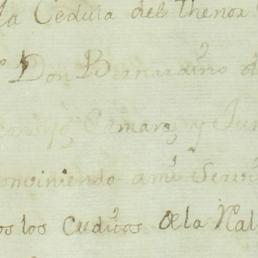 la Cedula del thenor
Don Bernardino de
Camara y Jun
conviniendo a mi Servi
os los Cuditos de la Nal